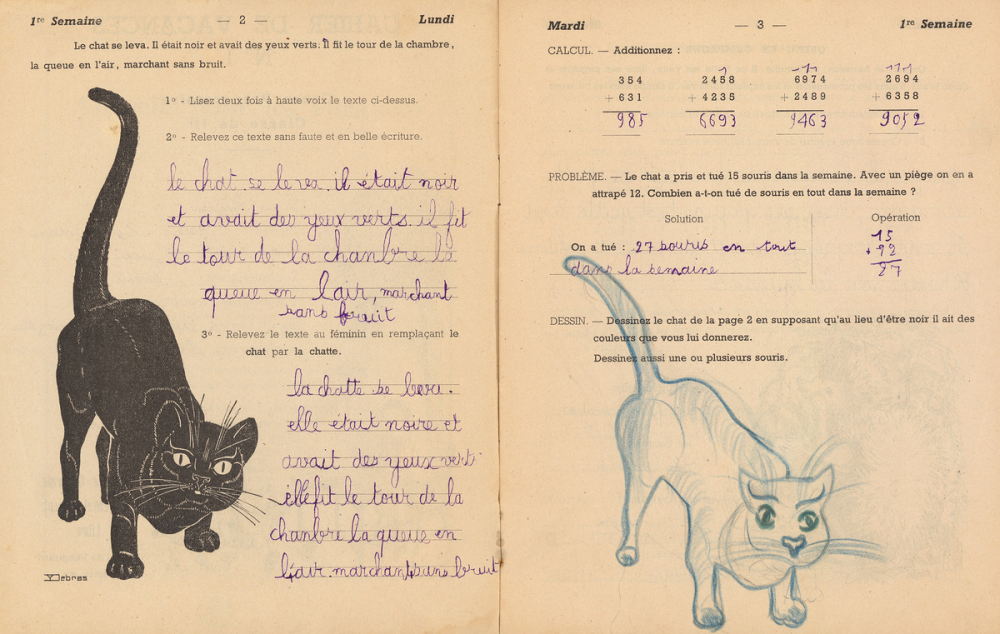 1re Semaine — 2 — Lundi
Le chat se leva. Il était noir et avait des yeux verts. Il fit le tour de la chambre,
la queue en l'air, marchant sans bruit.
1o - Lisez deux fois à haute voix le texte ci-dessus.
2o - Relevez ce texte sans faute et en belle écriture.
le chat se leva. il était noir
et avait des yeux verts. il fit
le tour de la chanbre la
queue en lair, marchant
sans bruit
3o - Relevez le texte au féminin en remplaçant le
chat par la chatte.
la chatte se leva.
elle était noire et
avait des yeux vert
elle fit le tour de la
chanbre la queue en
l'air. marchant sans bruit
Mardi — 3 — 1re Semaine
CALCUL. — Additionnez :
354 2458 6974 2694
+ 631 + 4235 + 2489 + 6358
985 6693 9463 9052
PROBLÈME. — Le chat a pris et tué 15 souris dans la semaine. Avec un piège on en a
attrapé 12. Combien a-t-on tué de souris en tout dans la semaine ?
Solution Opération
On a tué : 27 souris en tout
dans la semaine
15
+
27
DESSIN. — Dessinez le chat de la page 2 en supposant qu'au lieu d'être noir il ait des
couleurs que vous lui donnerez.
Dessinez aussi une ou plusieurs souris.